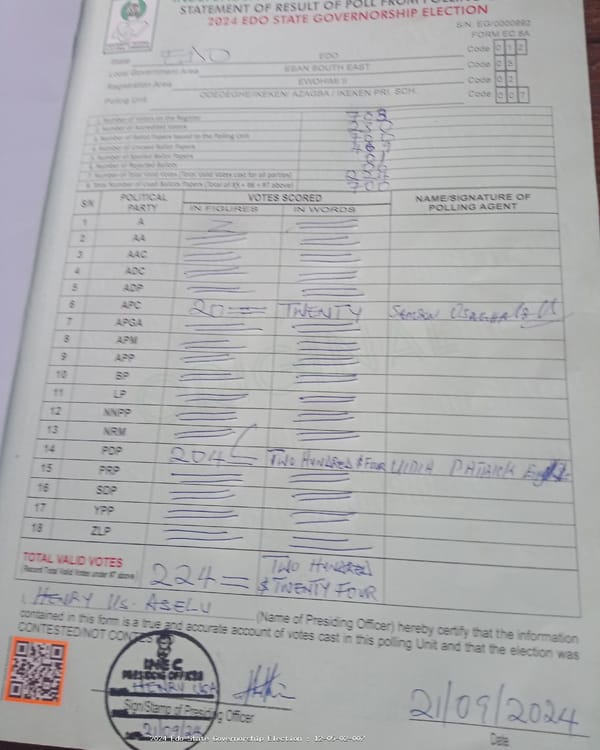 STATEMENT OF RESULT OF POLL FROM POLLING
2024 EDO STATE GOVERNORSHIP ELECTION
S/N. EG/0000892
FORM EC 8A
State EDO EDO Code 0 1 2
Local Government Area ESAN SOUTH EAST Code 0 5
Registration Area EWOHIMI II Code 0 2
Polling Unit ODEDEGHE/IKEKEN/ AZAGBA / IKEKEN PRI. SCH. Code 0 0 7
1. Number of Voters on the Register
2. Number of Accredited Voters
3. Number of Ballot Papers Issued to the Polling Unit
4. Number of Unused Ballot Papers
5. Number of Spoiled Ballot Papers
6. Number of Rejected Ballots
7. Number of Total Valid Votes (Total Valid Votes cast for all parties) 224
8. Total Number of Used Ballot Papers (Total of #5 + #6 + #7 above)
S/N POLITICAL PARTY VOTES SCORED NAME/SIGNATURE OF POLLING AGENT
IN FIGURES IN WORDS
1 A
2 AA
3 AAC
4 ADC
5 ADP
6 APC 20 TWENTY
7 APGA
8 APM
9 APP
10 BP
11 LP
12 NNPP
13 NRM
14 PDP 204 TWO HUNDRED & FOUR PATRICK
15 PRP
16 SDP
17 YPP
18 ZLP
TOTAL VALID VOTES 224 TWO HUNDRED
Record Total Valid Votes under #7 above) & TWENTY FOUR
I, HENRY ASELU (Name of Presiding Officer) hereby certify that the information
contained in this form is a true and accurate account of votes cast in this polling Unit and that the election was
CONTESTED/NOT CONTES
INEC
PRESIDING OFFICER
HENRY
Sign/Stamp of Presiding Officer
21/09/24
21/09/2024
Date
2024 Edo State Governorship Election : 12-05-02-007